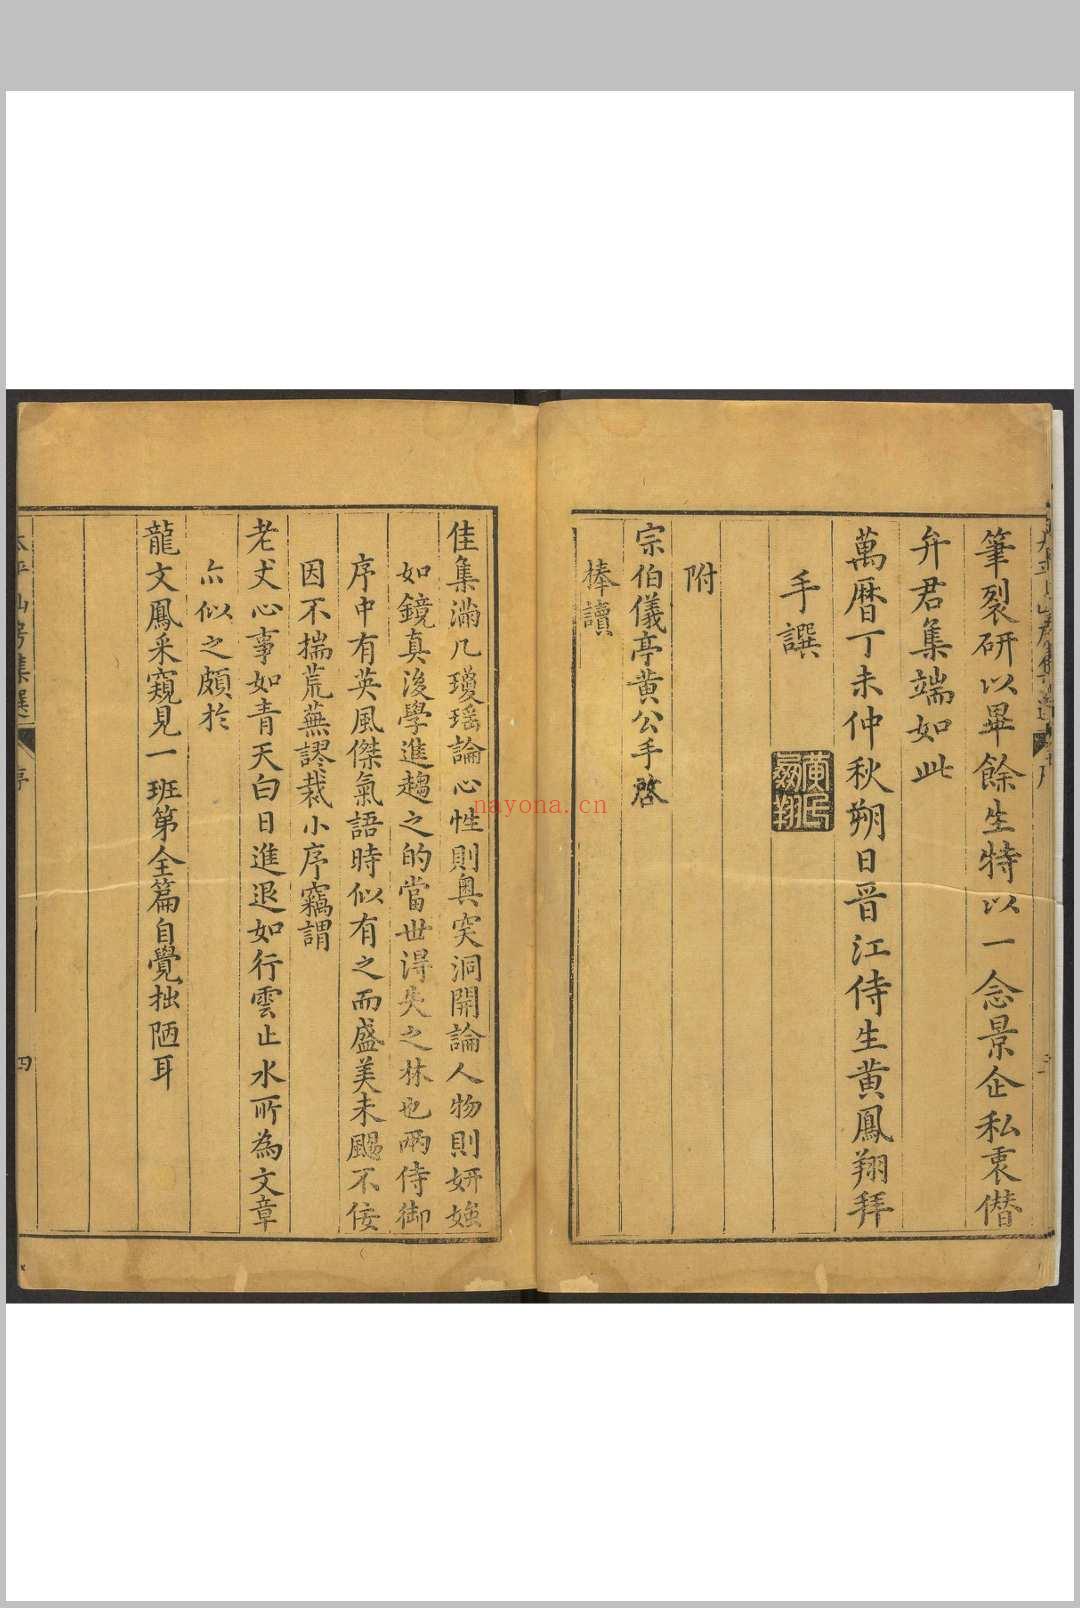 筆裂研以畢餘生特以一念景企私衷僣
弁君集端如此
萬曆丁未仲秋朔日晉江侍生黄鳳翔拜
手譔
黄氏鳴翔
附
宗伯儀亭黄公手啓
捧讀
佳集滿几瓊瑶論心性則奥突洞開論人物則妍媸
如鏡真後學進趨之的當世得失之林也兩侍御
序中有英風傑氣語時似有之而盛美未颺不佞
因不揣荒蕪謬裁小序竊謂
老丈心事如青天白日進退如行雲止水所為文章
亦似之頗於
龍文鳳采窺見一班第全篇自覺拙陋耳
序
四
nayona.cn